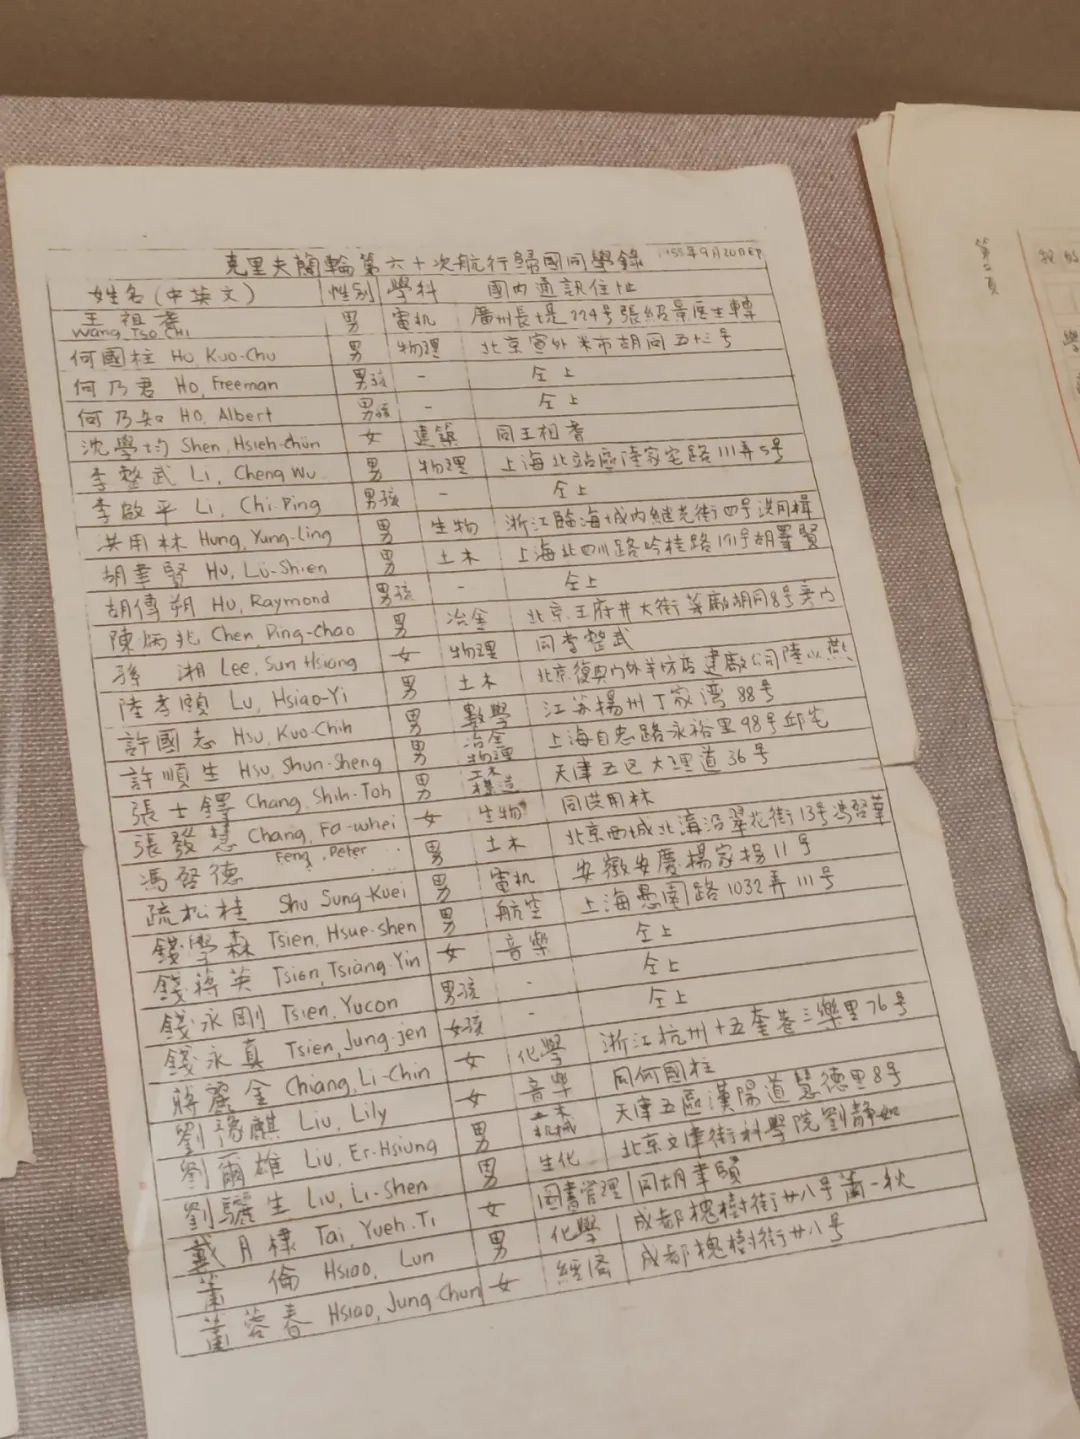 克里夫蘭輪第六十次航行歸國同學錄 1955年9月20日EP
姓名(中英文) 性别 學科 國内通訊住址
王祖耆 Wang, Tso Chi 男 電机 廣州長堤224号張紹景医生轉
何國柱 Ho, Kuo-Chu 男 物理 北京宣外米市胡同五十三号
何乃君 Ho, Freeman 男孩 - 仝上
何乃知 Ho, Albert 男孩 - 仝上
沈學均 Shen, Hsieh-chün 女 建築 同王祖耆
李整武 Li, Cheng Wu 男 物理 上海北站區陸家宅路111弄5号
李啟平 Li, Chi-Ping 男孩 - 仝上
洪用林 Hung, Yung-Ling 男 生物 浙江臨海城内継光街四号洪用楫
胡聿賢 Hu, Lü-Shien 男 土木 上海北四川路吟桂路191号胡
胡傳朔 Hu, Raymond 男孩 - 仝上
陳炳兆 Chen, Ping-Chao 男 冶金 北京王府井大街胡同8号
孫湘 Lee, Sun Hsiang 女 物理 同李整武
陸孝頤 Lu, Hsiao-Yi 男 土木 北京復興门外羊坊店建廠公司陸以燕
許國志 Hsu, Kuo-Chih 男 數學 江苏揚州丁家湾88号
許順生 Hsu, Shun-Sheng 男 冶金物理 上海自忠路永裕里98号邱宅
張士鐸 Chang, Shih-Toh 男 土木構造 天津五区大理道36号
張發慧 Chang, Fa-whei 女 生物 同洪用林
馮啓德 Feng, Peter 男 土木 北京西城北溝沿翠花街13号馮啓華
疏松桂 Shu Sung-Kuei 男 電机 安徽安慶楊家拐11号
錢學森 Tsien, Hsue-shen 男 航空 上海愚園路1032弄111号
錢蔣英 Tsien, Tsiang-Yin 女 音樂 仝上
錢永剛 Tsien, Yucon 男孩 - 仝上
錢永真 Tsien, Jung-jen 女孩 - 仝上
蔣麗金 Chiang, Li-Chin 女 化學 浙江杭州十五奎巷三樂里76号
劉豫麒 Liu, Lily 女 音樂 同何國柱
劉爾雄 Liu, Er-Hsiung 男 土木机械 天津五區漢陽道慧德里8号
劉驪生 Liu, Li-Shen 男 生化 北京文津街科學院劉靜如
戴月棣 Tai, Yueh-Ti 女 圖書管理 同胡聿賢
蕭倫 Hsiao, Lun 男 化學 成都槐樹街廿八号蕭一秋
蕭蓉春 Hsiao, Jung Chun 女 經濟 成都槐樹街廿八号
第二頁